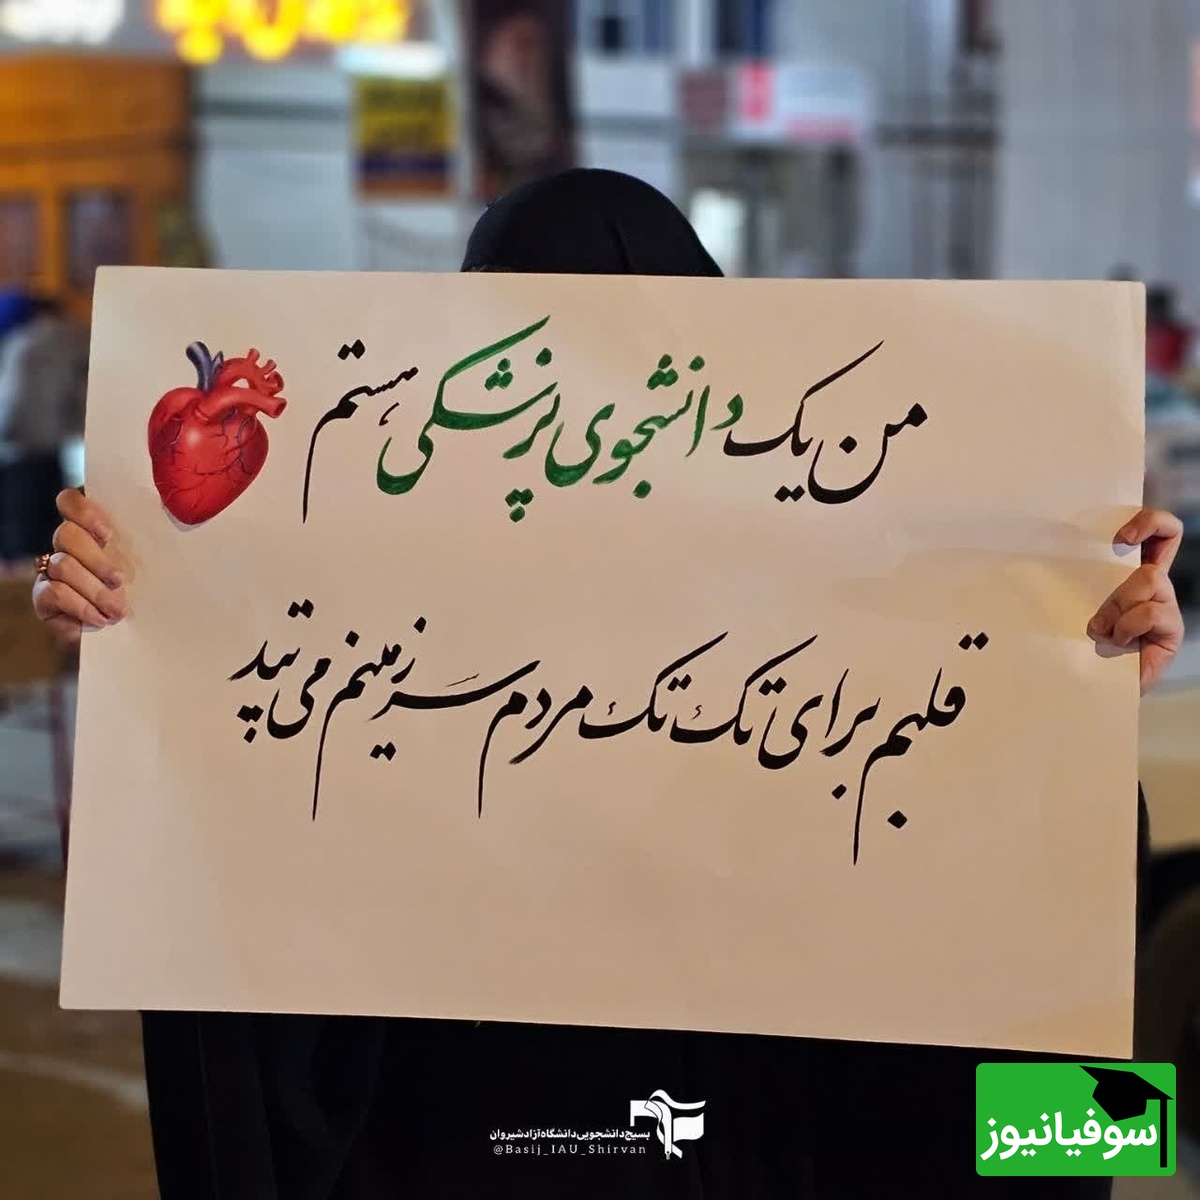 من یک دانشجوی پزشکی هستم
قلبم برای تک تک مردم سرزمینم می تپد
بسیج دانشجویی دانشگاه آزاد شیروان
@Basij_IAU_Shirvan
سوفیانیوز